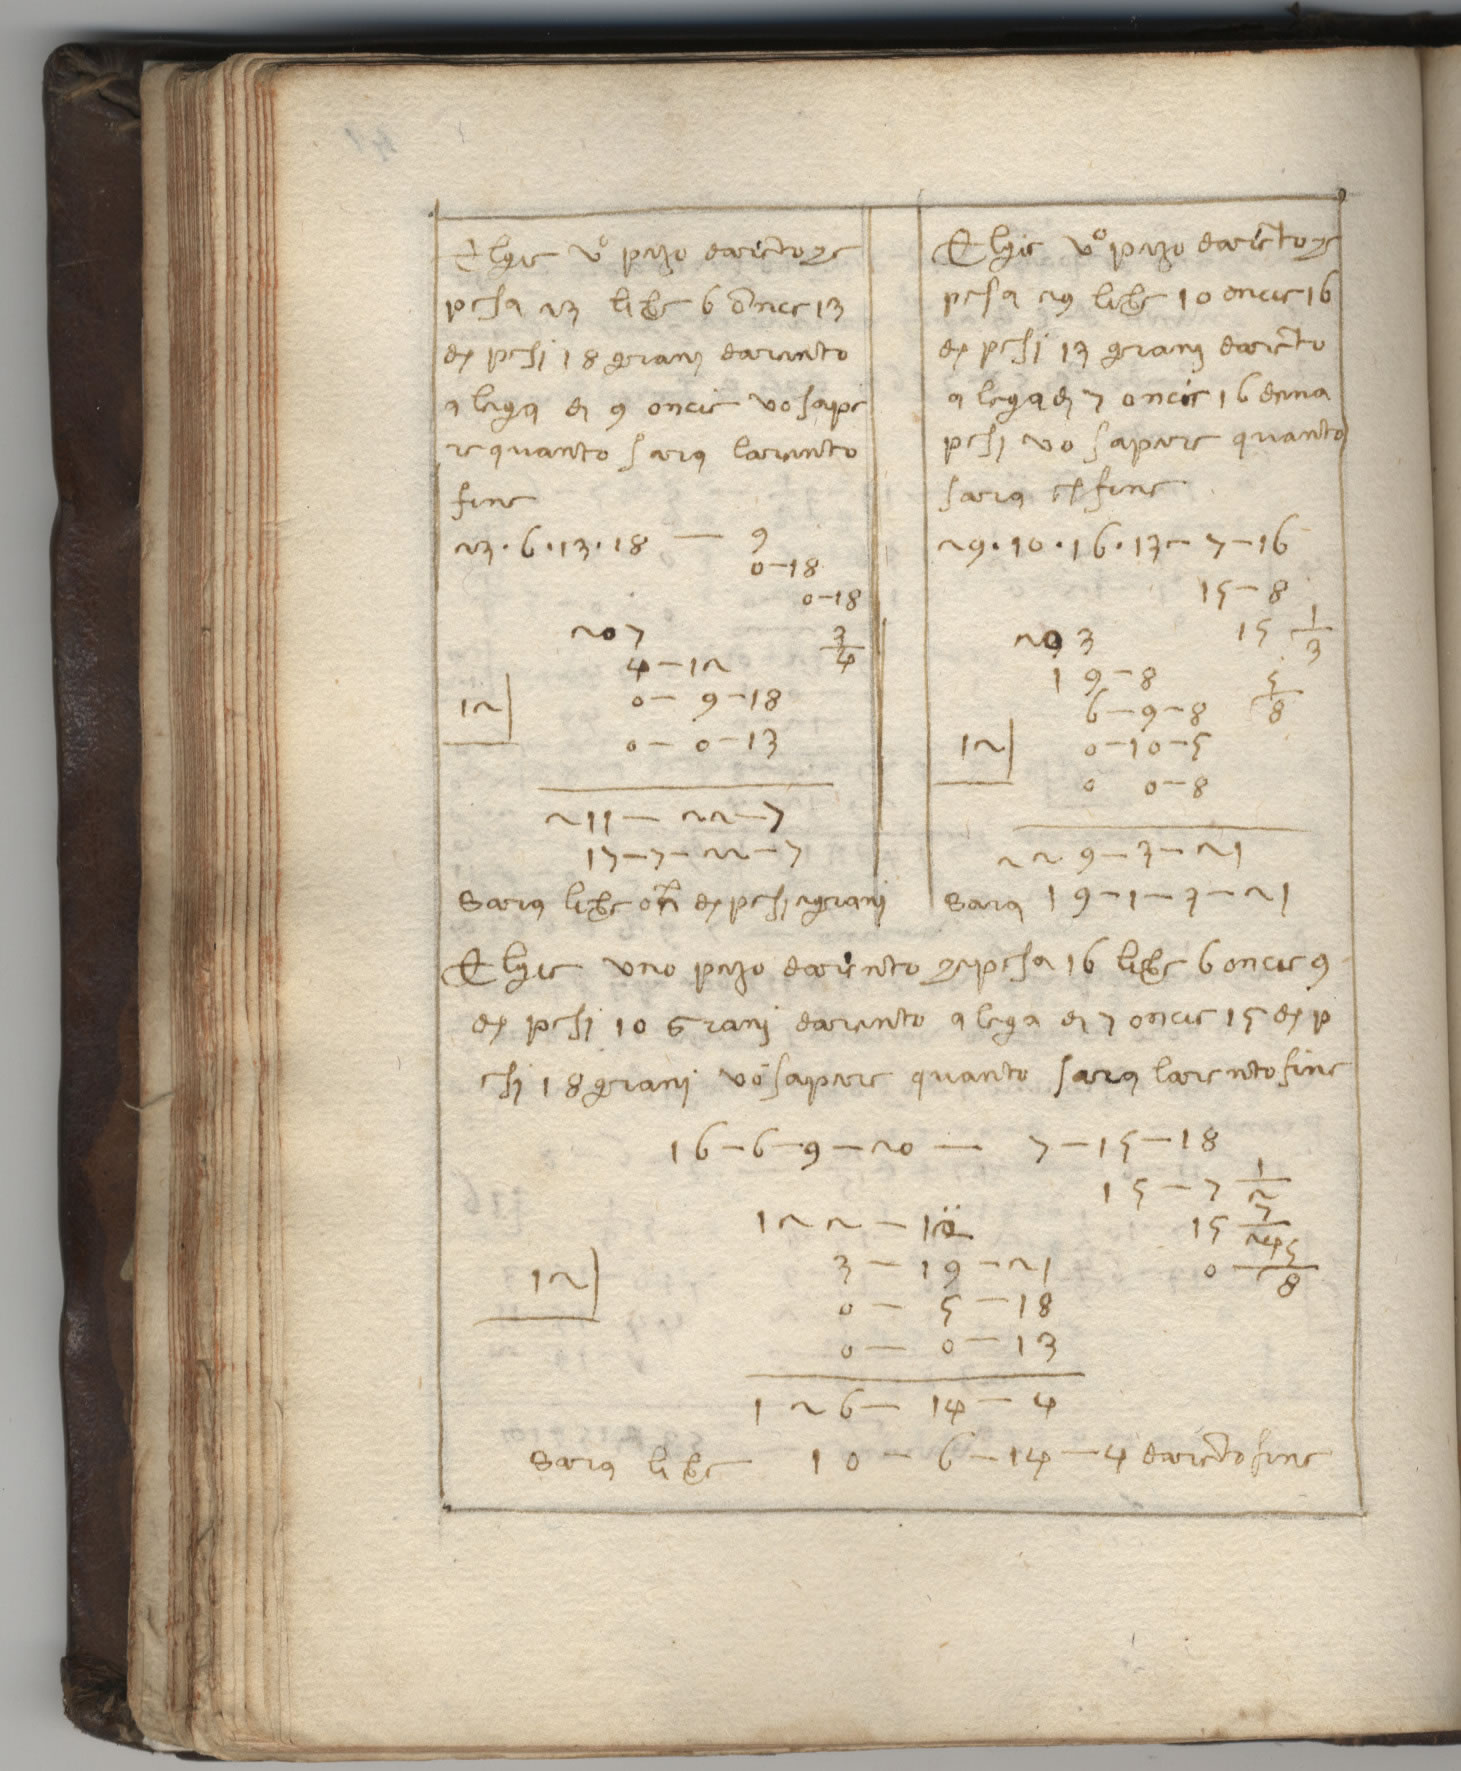 Elgie vo pezo darieto che
pesa 23 libre 6 once 13
den pesi 18 grani darento
a lega di 9 oncie vo sape
re quanto sara larento
fine
23·6·13·18 — 9
0-18
0-18
207 3/4
4-12
12 0-9-18
0-0-13
211-22-7
17-7-22-7
Sara libre on den pesi grani
Elgie vo pezo darieto che
pesa 29 libre 10 oncie 16
den pesi 13 grani darieto
a lega di 7 oncie 16 dena
pesi vo sapere quanto
sara el fine
29·10·16·13-7-16
15-8
203 15 1/3
19-8 5/8
6-9-8
12 0-10-5
0 0-8
229-3-21
Sara 19-1-3-21
Elgie uno pezo darento che pesa 16 libre 6 oncie 9
den pesi 10 Grani darento a lega di 7 oncie 15 den p
esi 18 grani vo sapere quanto sara larento fine
16-6-9-20 — 7-15-18
15-7 1/2
122-1 15 7/24
3-19-21 0 5/8
12 0-5-18
0-0-13
126-14-4
Sara libre 10-6-14-4 darieto fine